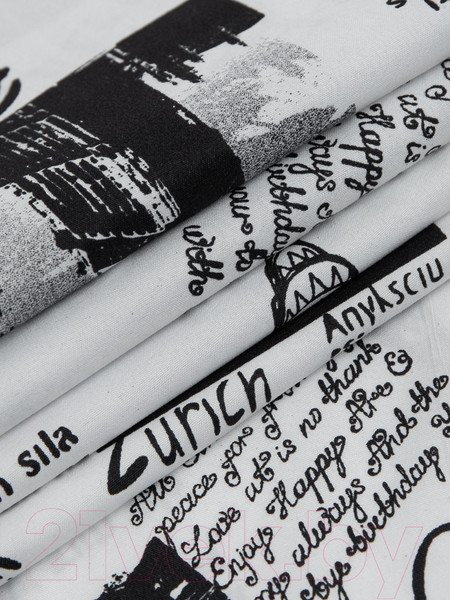 Happy
ut is
always
birthday
your to
with
Anyksciu
Zurich
n sila
peace for
Love ut is no thank
Enjoy Happy Are &
my always And the
joys birthday
21vek.by